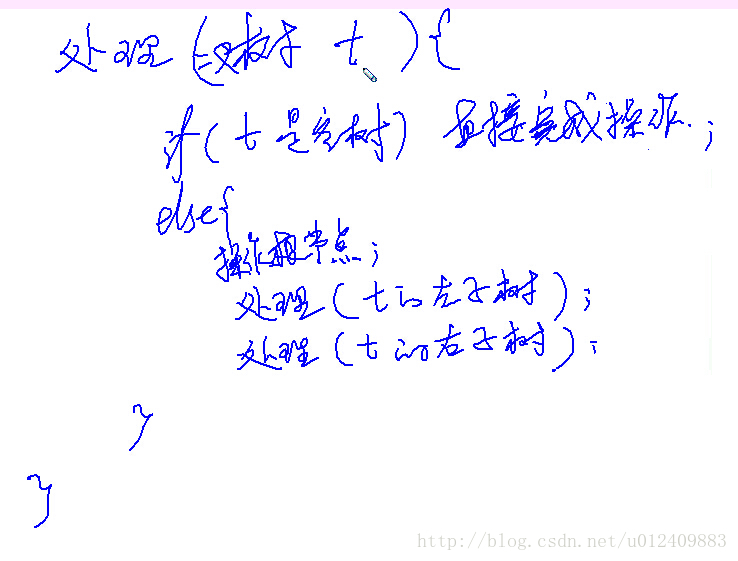 处理 (二叉树 t) {
if (t 是空树) 直接完成操作;
else {
操作根节点;
处理 (t 的左子树);
处理 (t 的右子树);
}
}
http://blog.csdn.net/u012409883